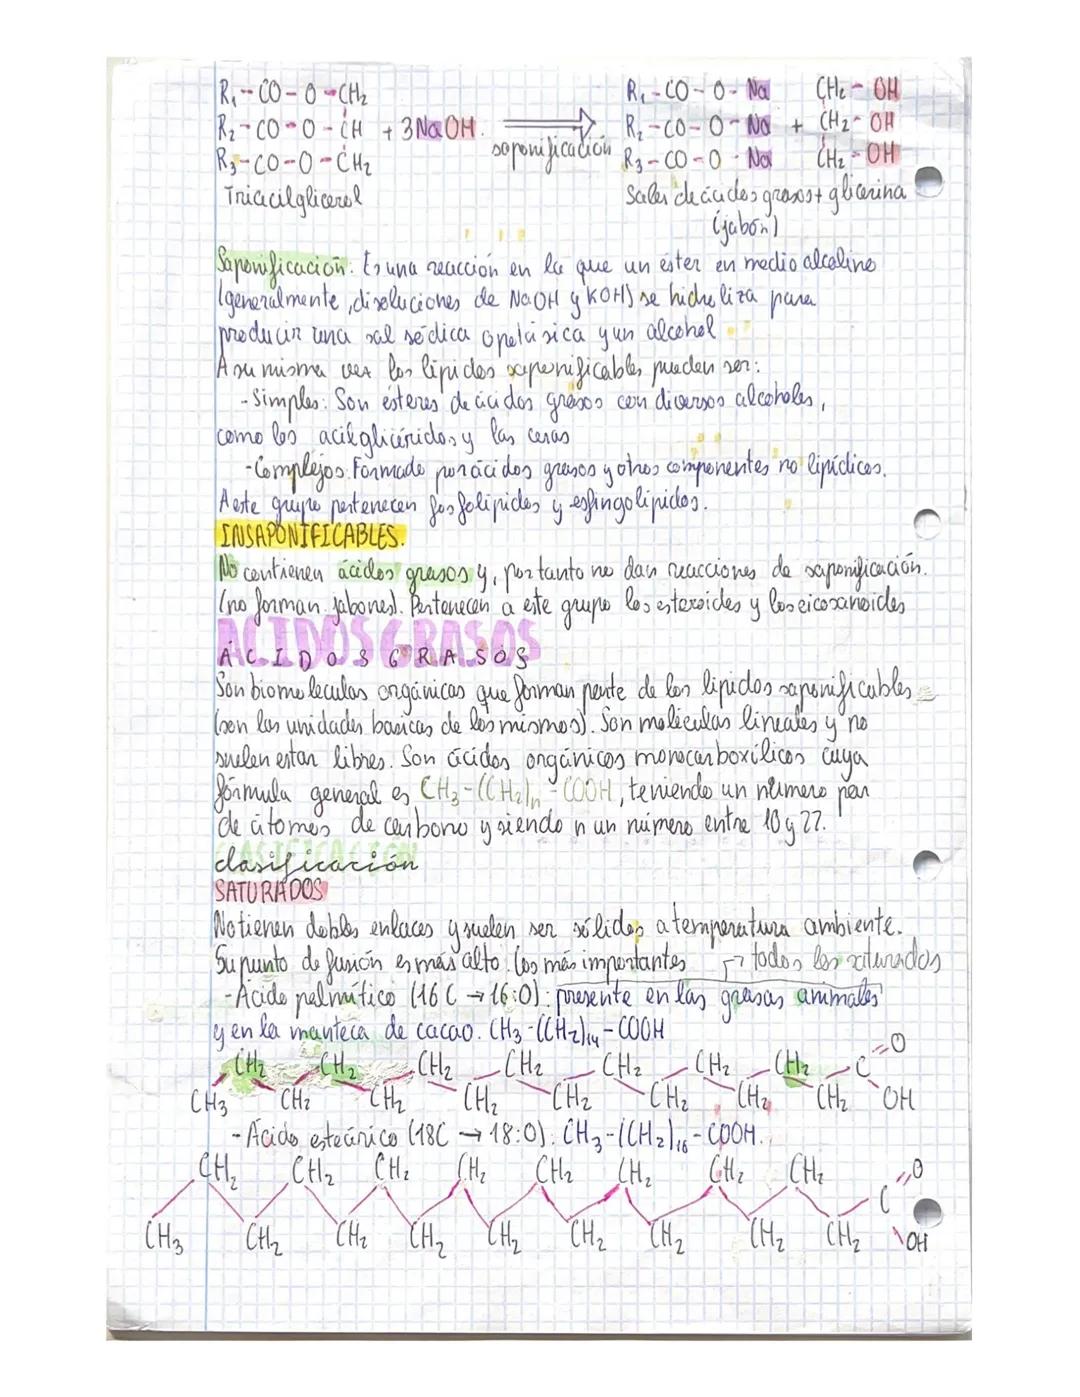 R₁-CO-O-CH₂ R₁-CO-O-Na CH₂-OH
R₂-CO-O-CH + 3NaOH. R₂-CO-O-Na + CH₂-OH
R₃-CO-O-CH₂ saponificación R₃-CO-O-Na CH₂-OH
Triacilglicerol Sales de ácidos grasos + glicerina
(jabón)
Saponificación: Es una reacción en la que un éster en medio alcalino
(generalmente, disoluciones de NaOH y KOH) se hidroliza para
producir una sal sódica o potásica y un alcohol
A su misma vez los lípidos saponificables pueden ser:
- Simples: Son ésteres de ácidos grasos con diversos alcoholes,
como los acilglicéridos y las ceras
- Complejos. Formado por ácidos grasos y otros componentes no lipídicos.
A este grupo pertenecen fosfolípidos y esfingolípidos.
INSAPONIFICABLES.
No contienen ácidos grasos y, por tanto no dan reacciones de saponificación.
(no forman jabones). Pertenecen a este grupo los esteroides y los eicosanoides
ÁCIDOS GRASOS
Son biomoleculas orgánicas que forman parte de los lípidos saponificables
(son las unidades basicas de los mismos). Son moléculas lineales y no
suelen estar libres. Son ácidos orgánicos monocarboxílicos cuya
fórmula general es CH₃-(CH₂)n-COOH, teniendo un número par
de átomos de carbono y siendo n un número entre 10 y 22.
clasificación
SATURADOS
No tienen dobles enlaces y suelen ser sólidos a temperatura ambiente.
Su punto de fusión es más alto. Los más importantes → todos los saturados
- Ácido palmítico (16C → 16:0): presente en las grasas animales
y en la manteca de cacao. CH₃-(CH₂)₁₄-COOH
CH₂ CH₂ CH₂ CH₂ CH₂ CH₂ CH₂ C O
CH₃ CH₂ CH₂ CH₂ CH₂ CH₂ CH₂ CH₂ OH
- Ácido esteárico (18C → 18:0): CH₃-(CH₂)₁₆-COOH.
CH₂ CH₂ CH₂ CH₂ CH₂ CH₂ CH₂ CH₂ C O
CH₃ CH₂ CH₂ CH₂ CH₂ CH₂ CH₂ CH₂ CH₂ OH